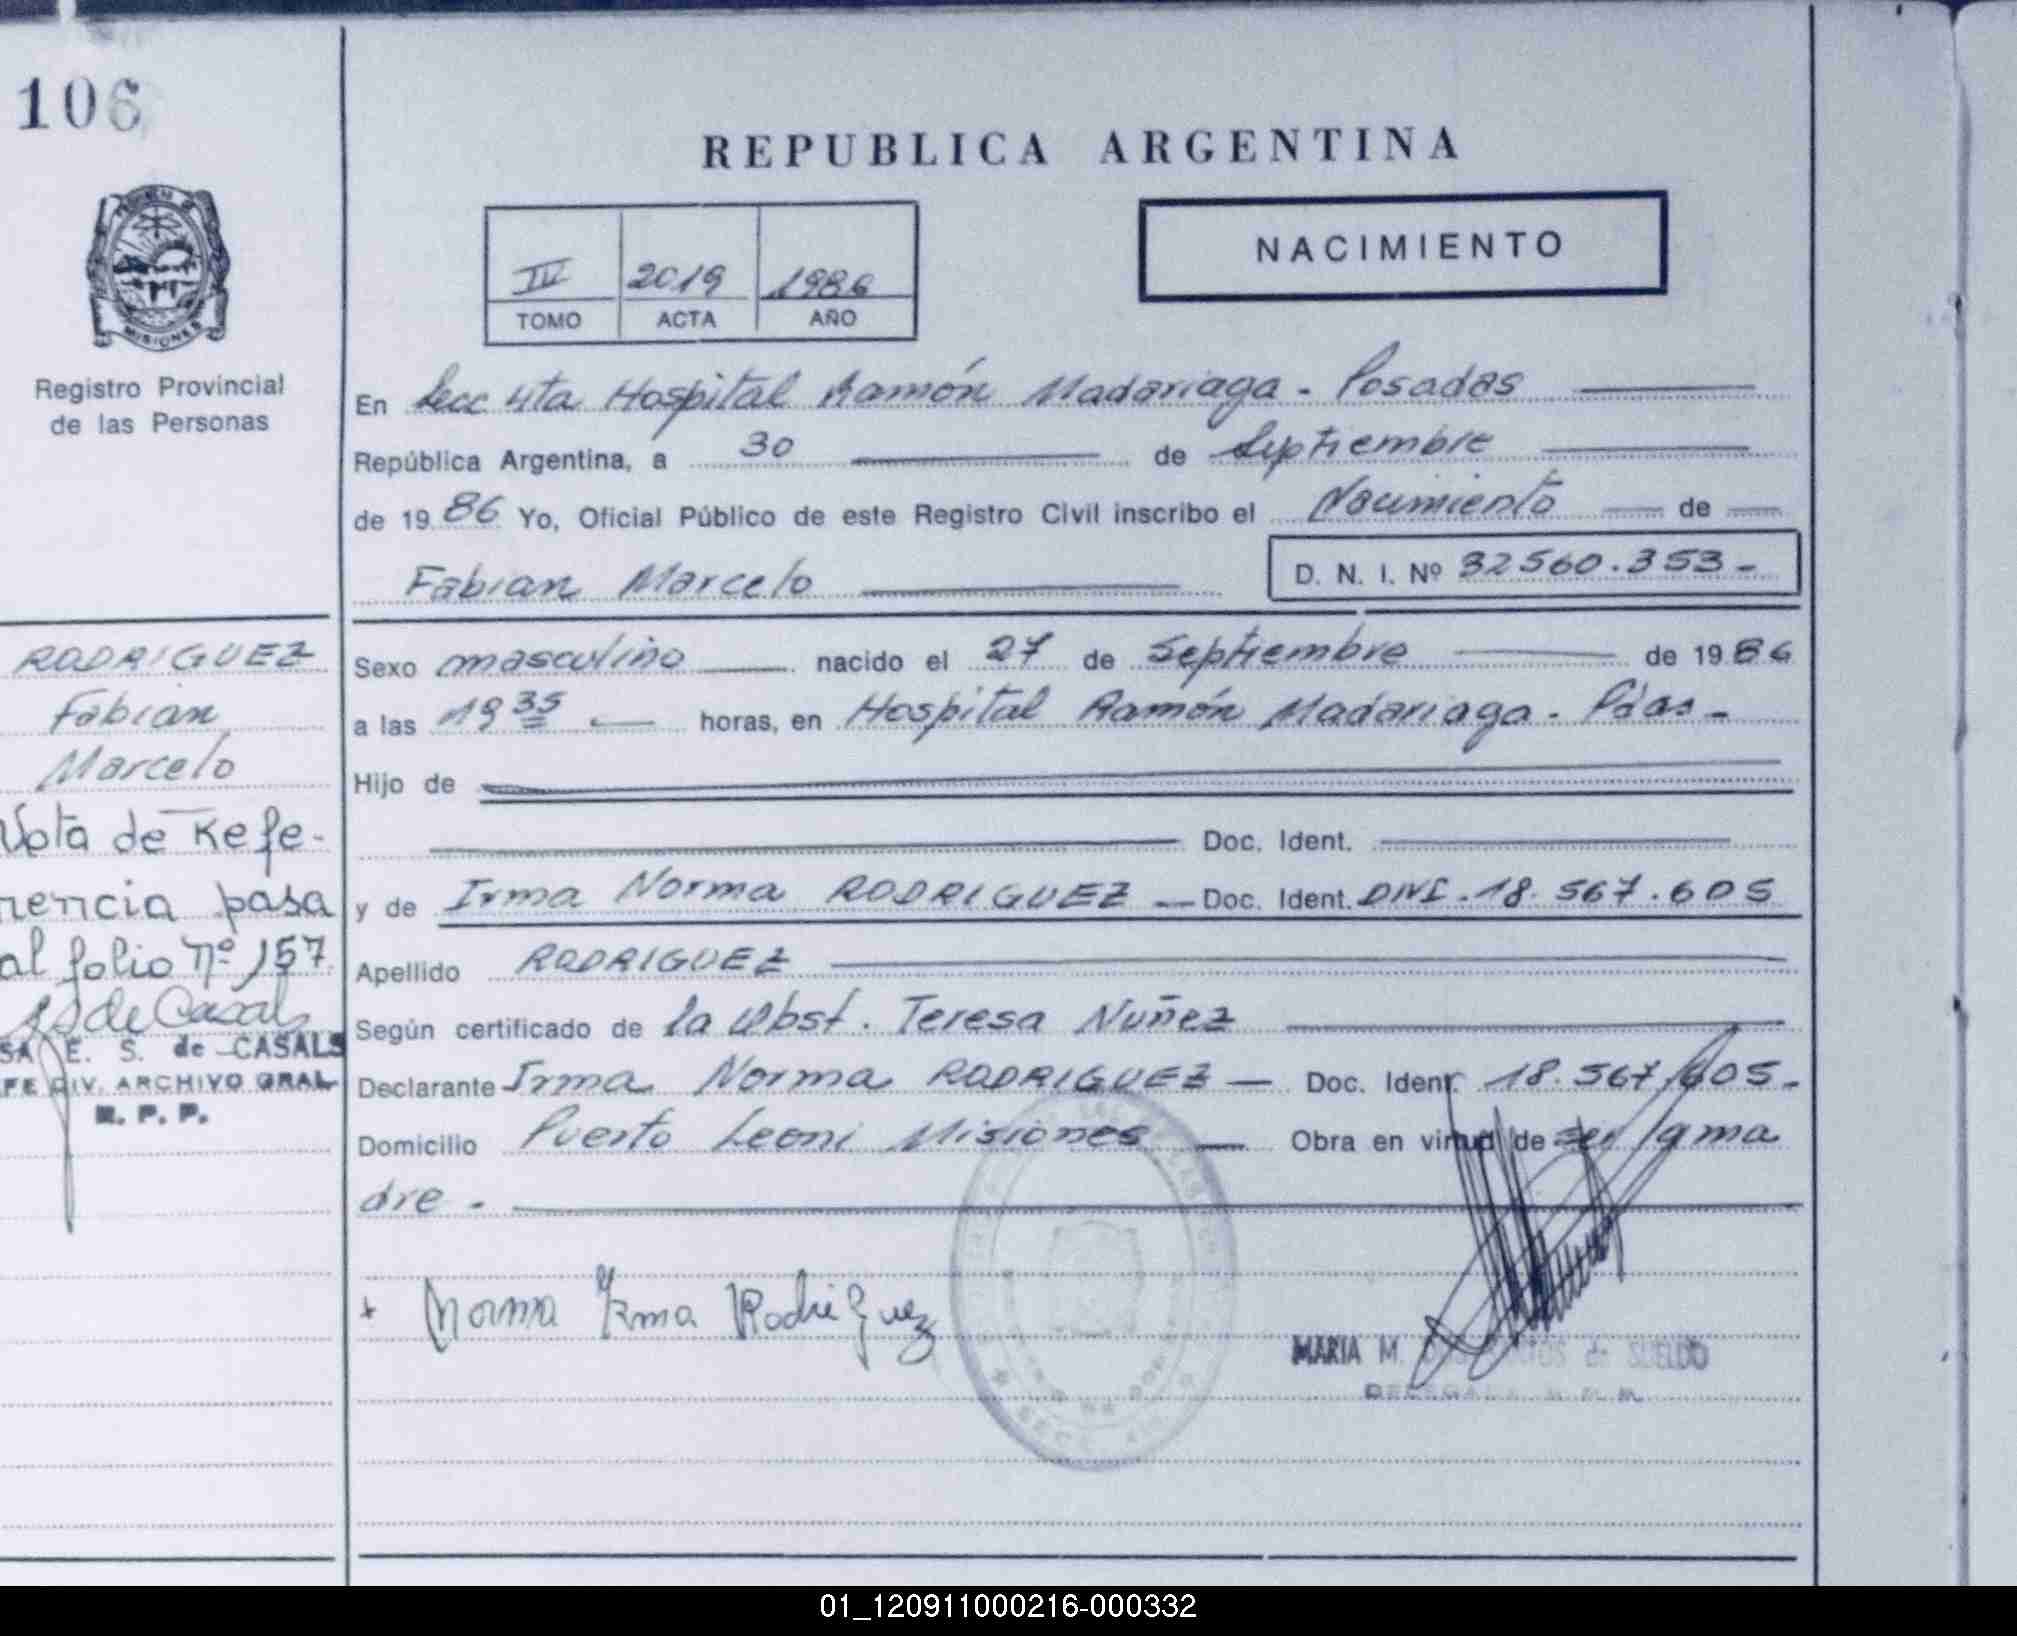 106
REPUBLICA ARGENTINA
NACIMIENTO
IV 2019 1986
TOMO ACTA AÑO
MISIONES
Registro Provincial
de las Personas
En Secc 4ta Hospital Ramón Madariaga - Posadas
República Argentina, a 30 de Septiembre
de 1986 Yo, Oficial Público de este Registro Civil inscribo el Nacimiento de
Fabian Marcelo D. N. I. Nº 32560.353-
RODRIGUEZ
Fabian
Marcelo
Nota de Refe-
rencia pasa
al folio nº 157
S de Casals
SA E. S. de CASALS
FE DIV. ARCHIVO GRAL
R. P. P.
Sexo masculino nacido el 27 de Septiembre de 1986
a las 19 35 horas, en Hospital Ramón Madariaga - Pdas -
Hijo de
Doc. Ident.
y de Irma Norma RODRIGUEZ - Doc. Ident. DNI. 18.567.605
Apellido RODRIGUEZ
Según certificado de la Obst. Teresa Nuñez
Declarante Irma Norma RODRIGUEZ - Doc. Ident. 18.567.605-
Domicilio Puerto Leoni Misiones - Obra en virtud de ser la ma
dre -
Norma Irma Rodriguez
MARIA M. de SUELDO
01_120911000216-000332